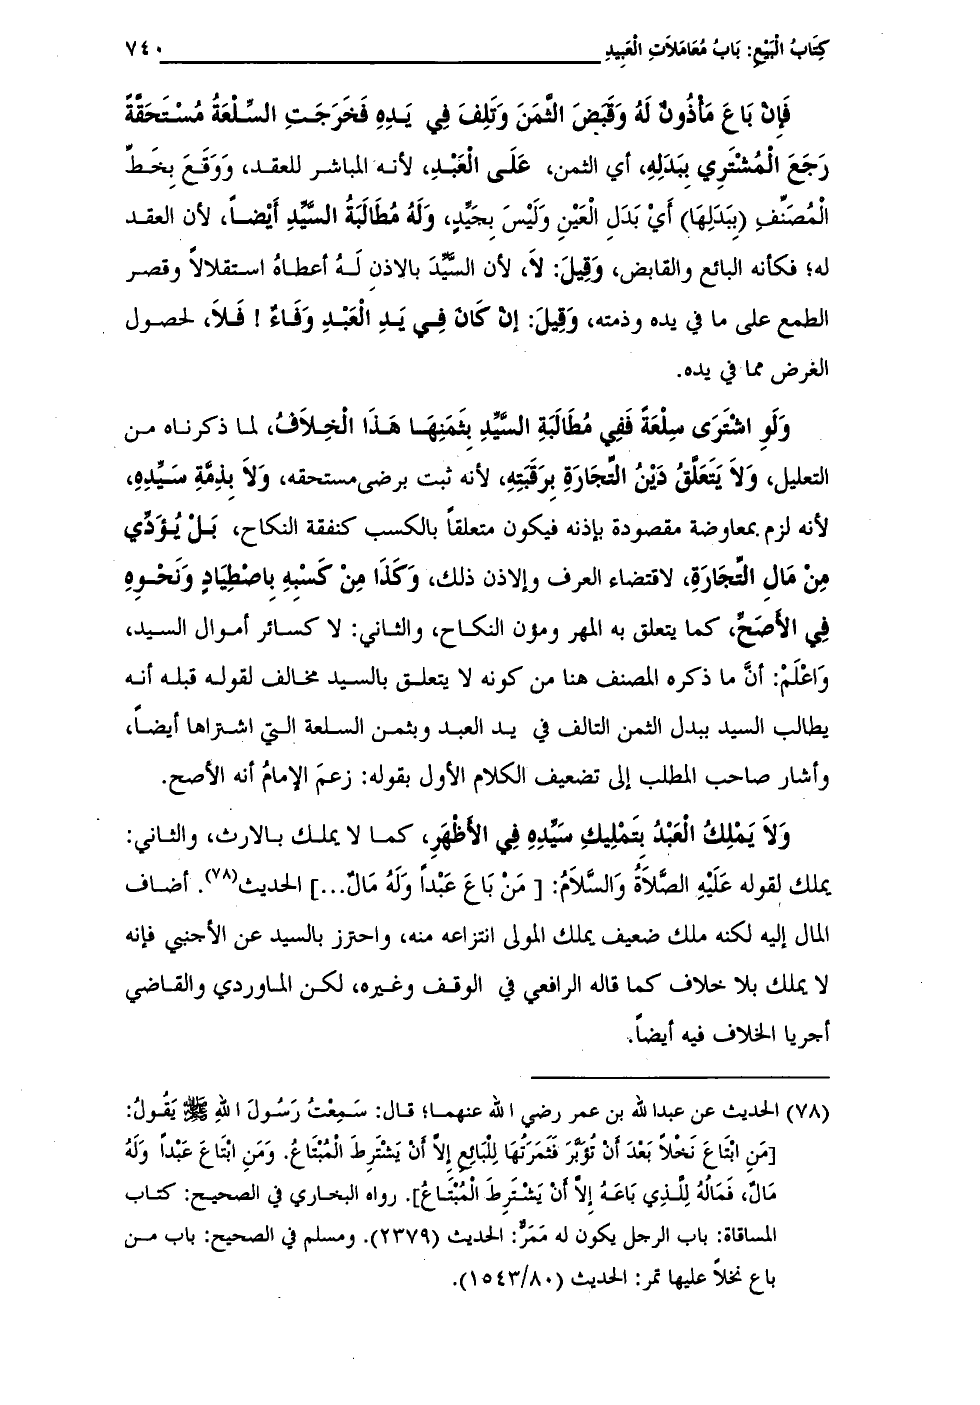 كِتَابُ الْبَيْعِ: بَابُ مُعَامَلاَتِ الْعَبِيدِ ٧٤٠
فَإِنْ بَاعَ مَأْذُونٌ لَهُ وَقَبَضَ الثَّمَنَ وَتَلِفَ فِي يَدِهِ فَخَرَجَتِ السِّلْعَةُ مُسْتَحَقَّةً
رَجَعَ الْمُشْتَرِي بِبَدَلِهِ، أي الثمن، عَلَى الْعَبْدِ، لأنه المباشر للعقد، وَوَقَعَ بِخَطِّ
الْمُصَنِّفِ (بِبَدَلِهَا) أَيْ بَدَلِ الْعَيْنِ وَلَيْسَ بِجَيِّدٍ، وَلَهُ مُطَالَبَةُ السَّيِّدِ أَيْضاً، لأن العقد
له؛ فكأنه البائع والقابض، وَقِيلَ: لاَ، لأن السَّيِّدَ بالاذن لَهُ أعطاهُ استقلالاً وقصر
الطمع على ما في يده وذمته، وَقِيلَ: إِنْ كَانَ فِي يَدِ الْعَبْدِ وَفَاءٌ ! فَلاَ، لحصول
الغرض مما في يده.
وَلَوِ اشْتَرَى سِلْعَةً فَفِي مُطَالَبَةِ السَّيِّدِ بِثَمَنِهَا هَذَا الْخِلاَفُ، لما ذكرناه من
التعليل، وَلاَ يَتَعَلَّقُ دَيْنُ التِّجَارَةِ بِرَقَبَتِهِ، لأنه ثبت برضى مستحقه، وَلاَ بِذِمَّةِ سَيِّدِهِ،
لأنه لزم بمعاوضة مقصودة بإذنه فيكون متعلقاً بالكسب كنفقة النكاح، بَلْ يُؤَدِّي
مِنْ مَالِ التِّجَارَةِ، لاقتضاء العرف وإلاذن ذلك، وَكَذَا مِنْ كَسْبِهِ بِاصْطِيَادٍ وَنَحْوِهِ
فِي الأَصَحِّ، كما يتعلق به المهر ومؤن النكاح، والثاني: لا كسائر أموال السيد،
وَاعْلَمْ: أنَّ ما ذكره المصنف هنا من كونه لا يتعلق بالسيد مخالف لقوله قبله أنه
يطالب السيد ببدل الثمن التالف في يد العبد وبثمن السلعة التي اشتراها أيضاً،
وأشار صاحب المطلب إلى تضعيف الكلام الأول بقوله: زعمَ الإمامُ أنه الأصح.
وَلاَ يَمْلِكُ الْعَبْدُ بِتَمْلِيكِ سَيِّدِهِ فِي الأَظْهَرِ، كما لا يملك بالارث، والثاني:
يملك لقوله عَلَيْهِ الصَّلاَةُ وَالسَّلاَمُ: [ مَنْ بَاعَ عَبْداً وَلَهُ مَالٌ...] الحديث(٧٨). أضاف
المال إليه لكنه ملك ضعيف يملك المولى انتزاعه منه، واحترز بالسيد عن الأجنبي فإنه
لا يملك بلا خلاف كما قاله الرافعي في الوقف وغيره، لكن الماوردي والقاضي
أجريا الخلاف فيه أيضاً.
(٧٨) الحديث عن عبدالله بن عمر رضي الله عنهما؛ قال: سَمِعْتُ رَسُولَ اللهِ ﷺ يَقُولُ:
[مَنِ ابْتَاعَ نَخْلاً بَعْدَ أَنْ تُؤَبَّرَ فَثَمَرَتُهَا لِلْبَائِعِ إِلاَّ أَنْ يَشْتَرِطَ الْمُبْتَاعُ. وَمَنِ ابْتَاعَ عَبْداً وَلَهُ
مَالٌ، فَمَالُهُ لِلَّذِي بَاعَهُ إِلاَّ أَنْ يَشْتَرِطَ الْمُبْتَاعُ]. رواه البخاري في الصحيح: كتاب
المساقاة: باب الرجل يكون له مَمَرٌّ: الحديث (٢٣٧٩). ومسلم في الصحيح: باب من
باع نخلاً عليها تمر: الحديث (١٥٤٣/٨٠).